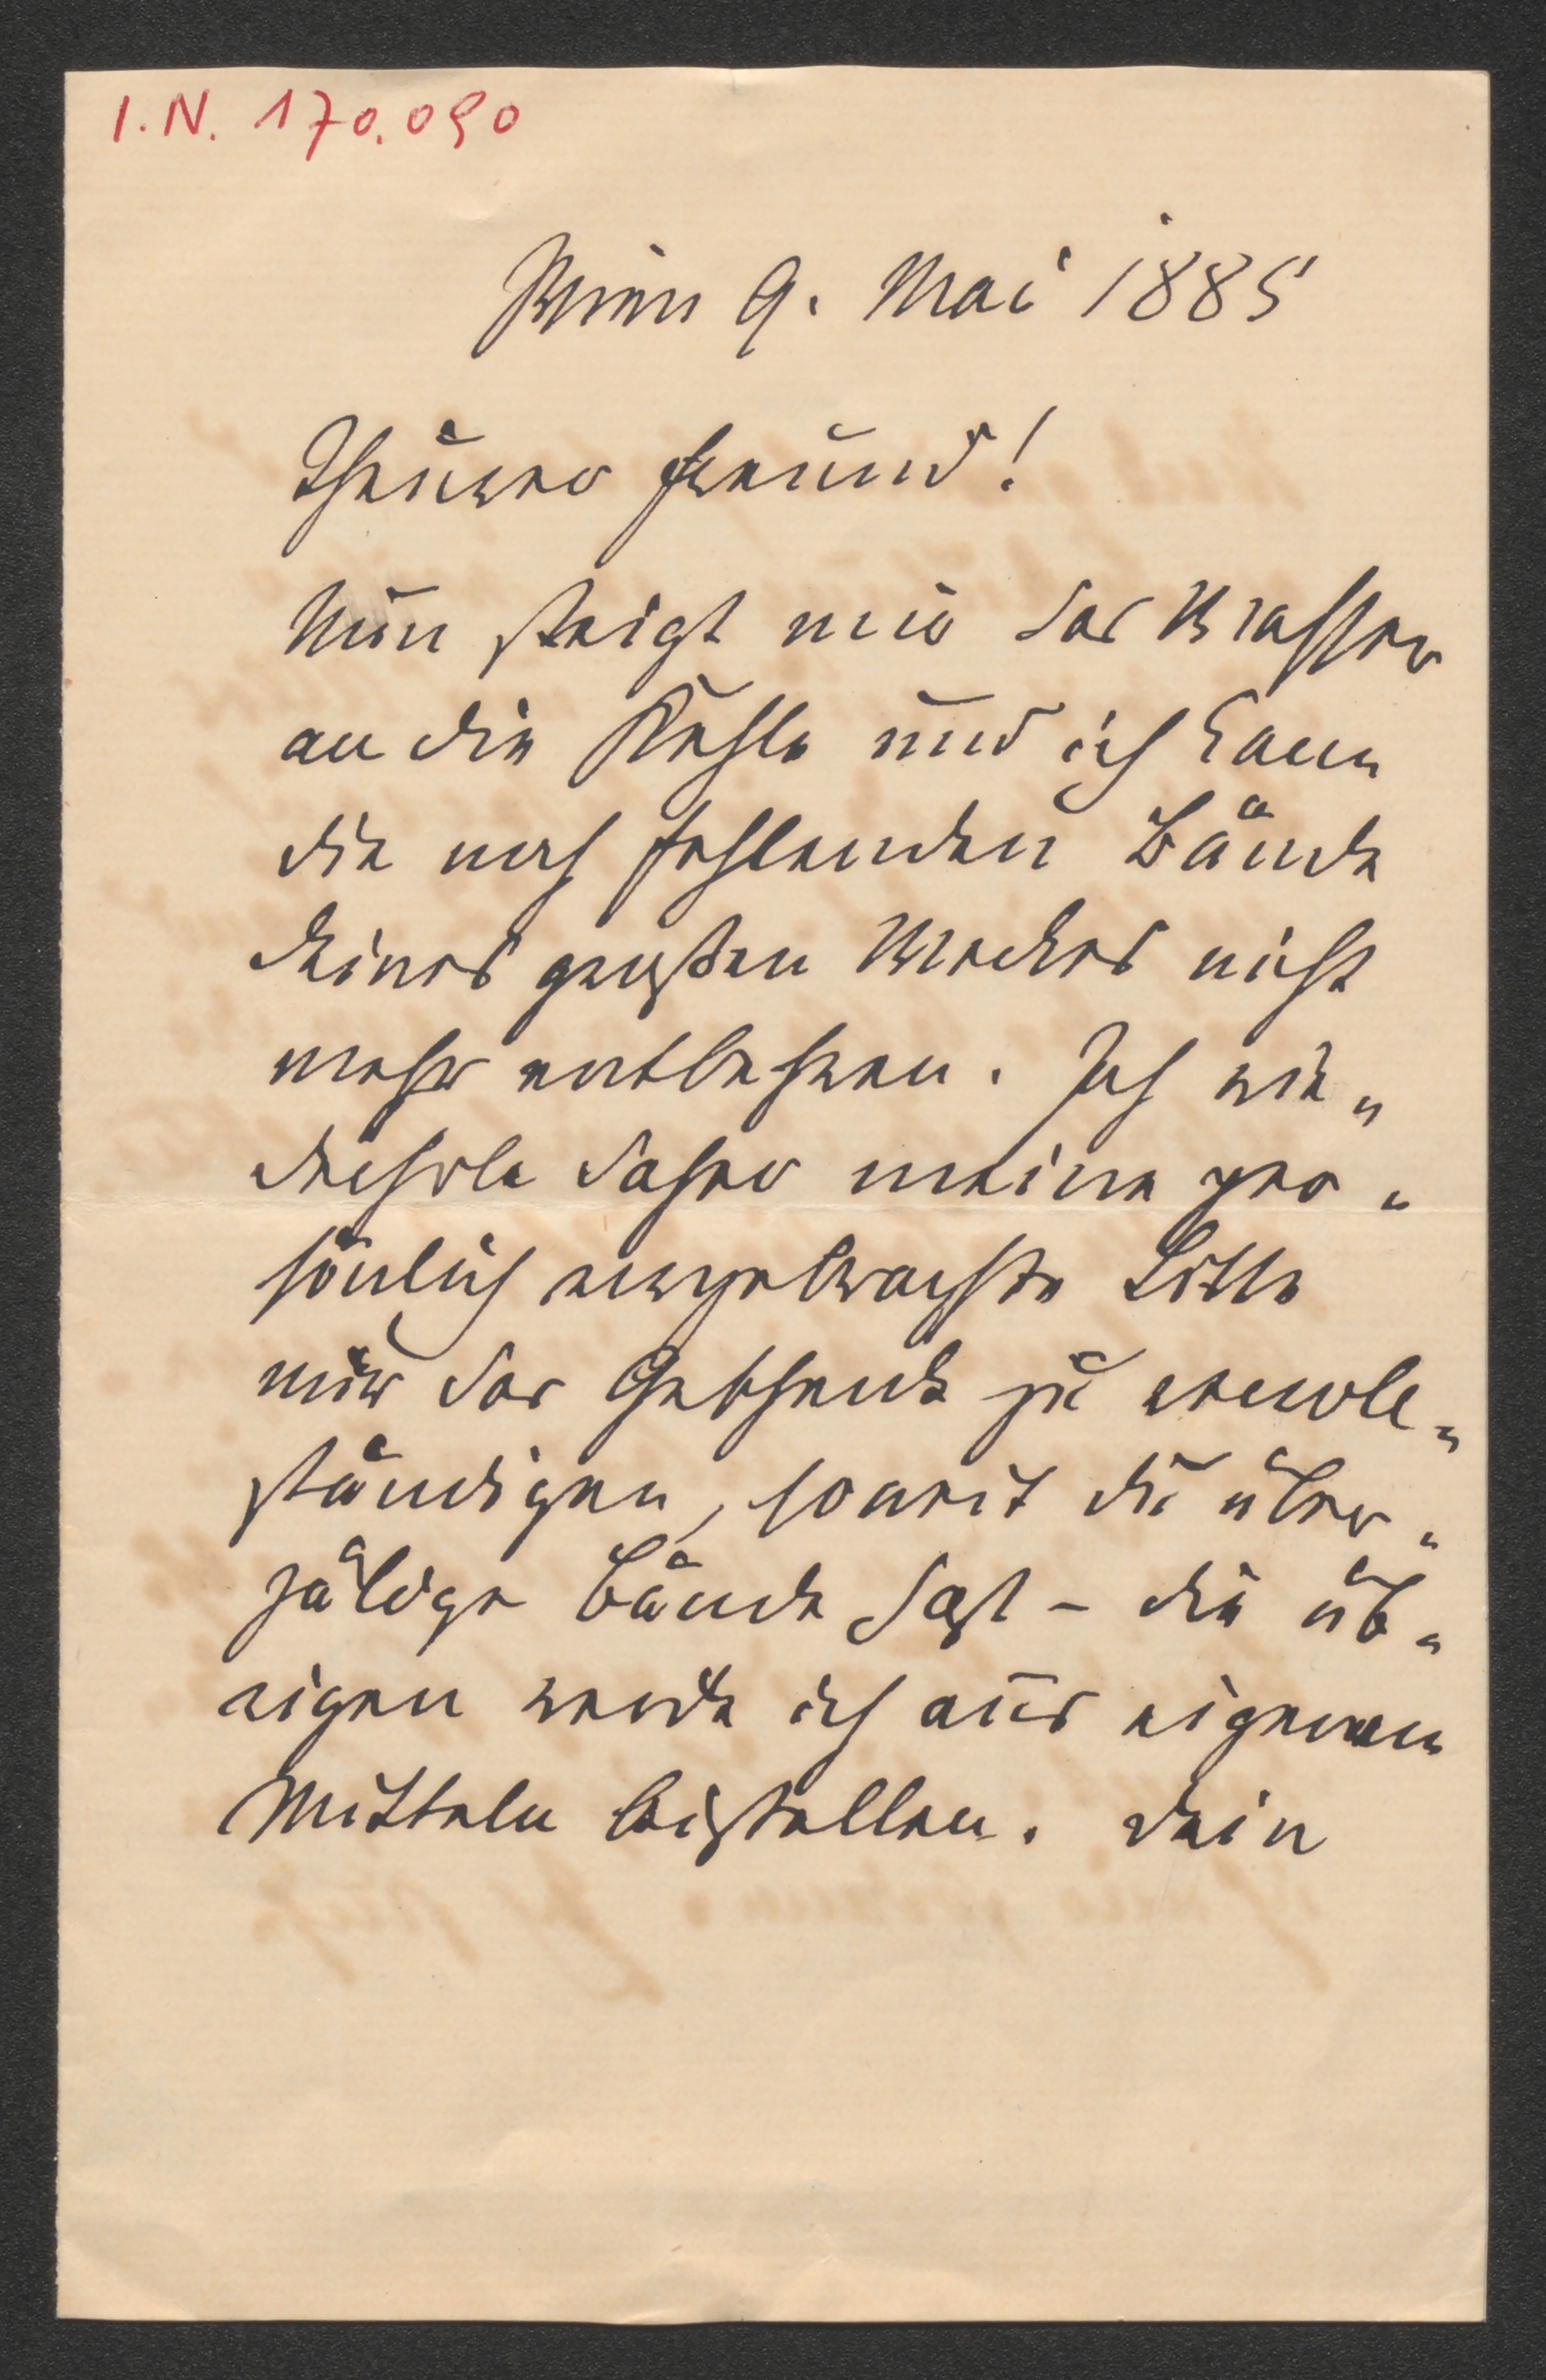 I.N. 170.090
Wien 9. Mai 1885
Theurer Freund!
Nun steigt mir das Wasser
an die Kehle und ich kann
die noch fehlenden Bände
deines großen Werkes nicht
mehr entbehren. Ich wie„
derhole daher meine per„
sönlich ausgebrachte Bitte
mir das Geschenk zu vervoll„
ständigen, soweit du über„
zälige Bände hast – die üb„
rigen werde ich aus eigenen
Mitteln beistellen. Dein